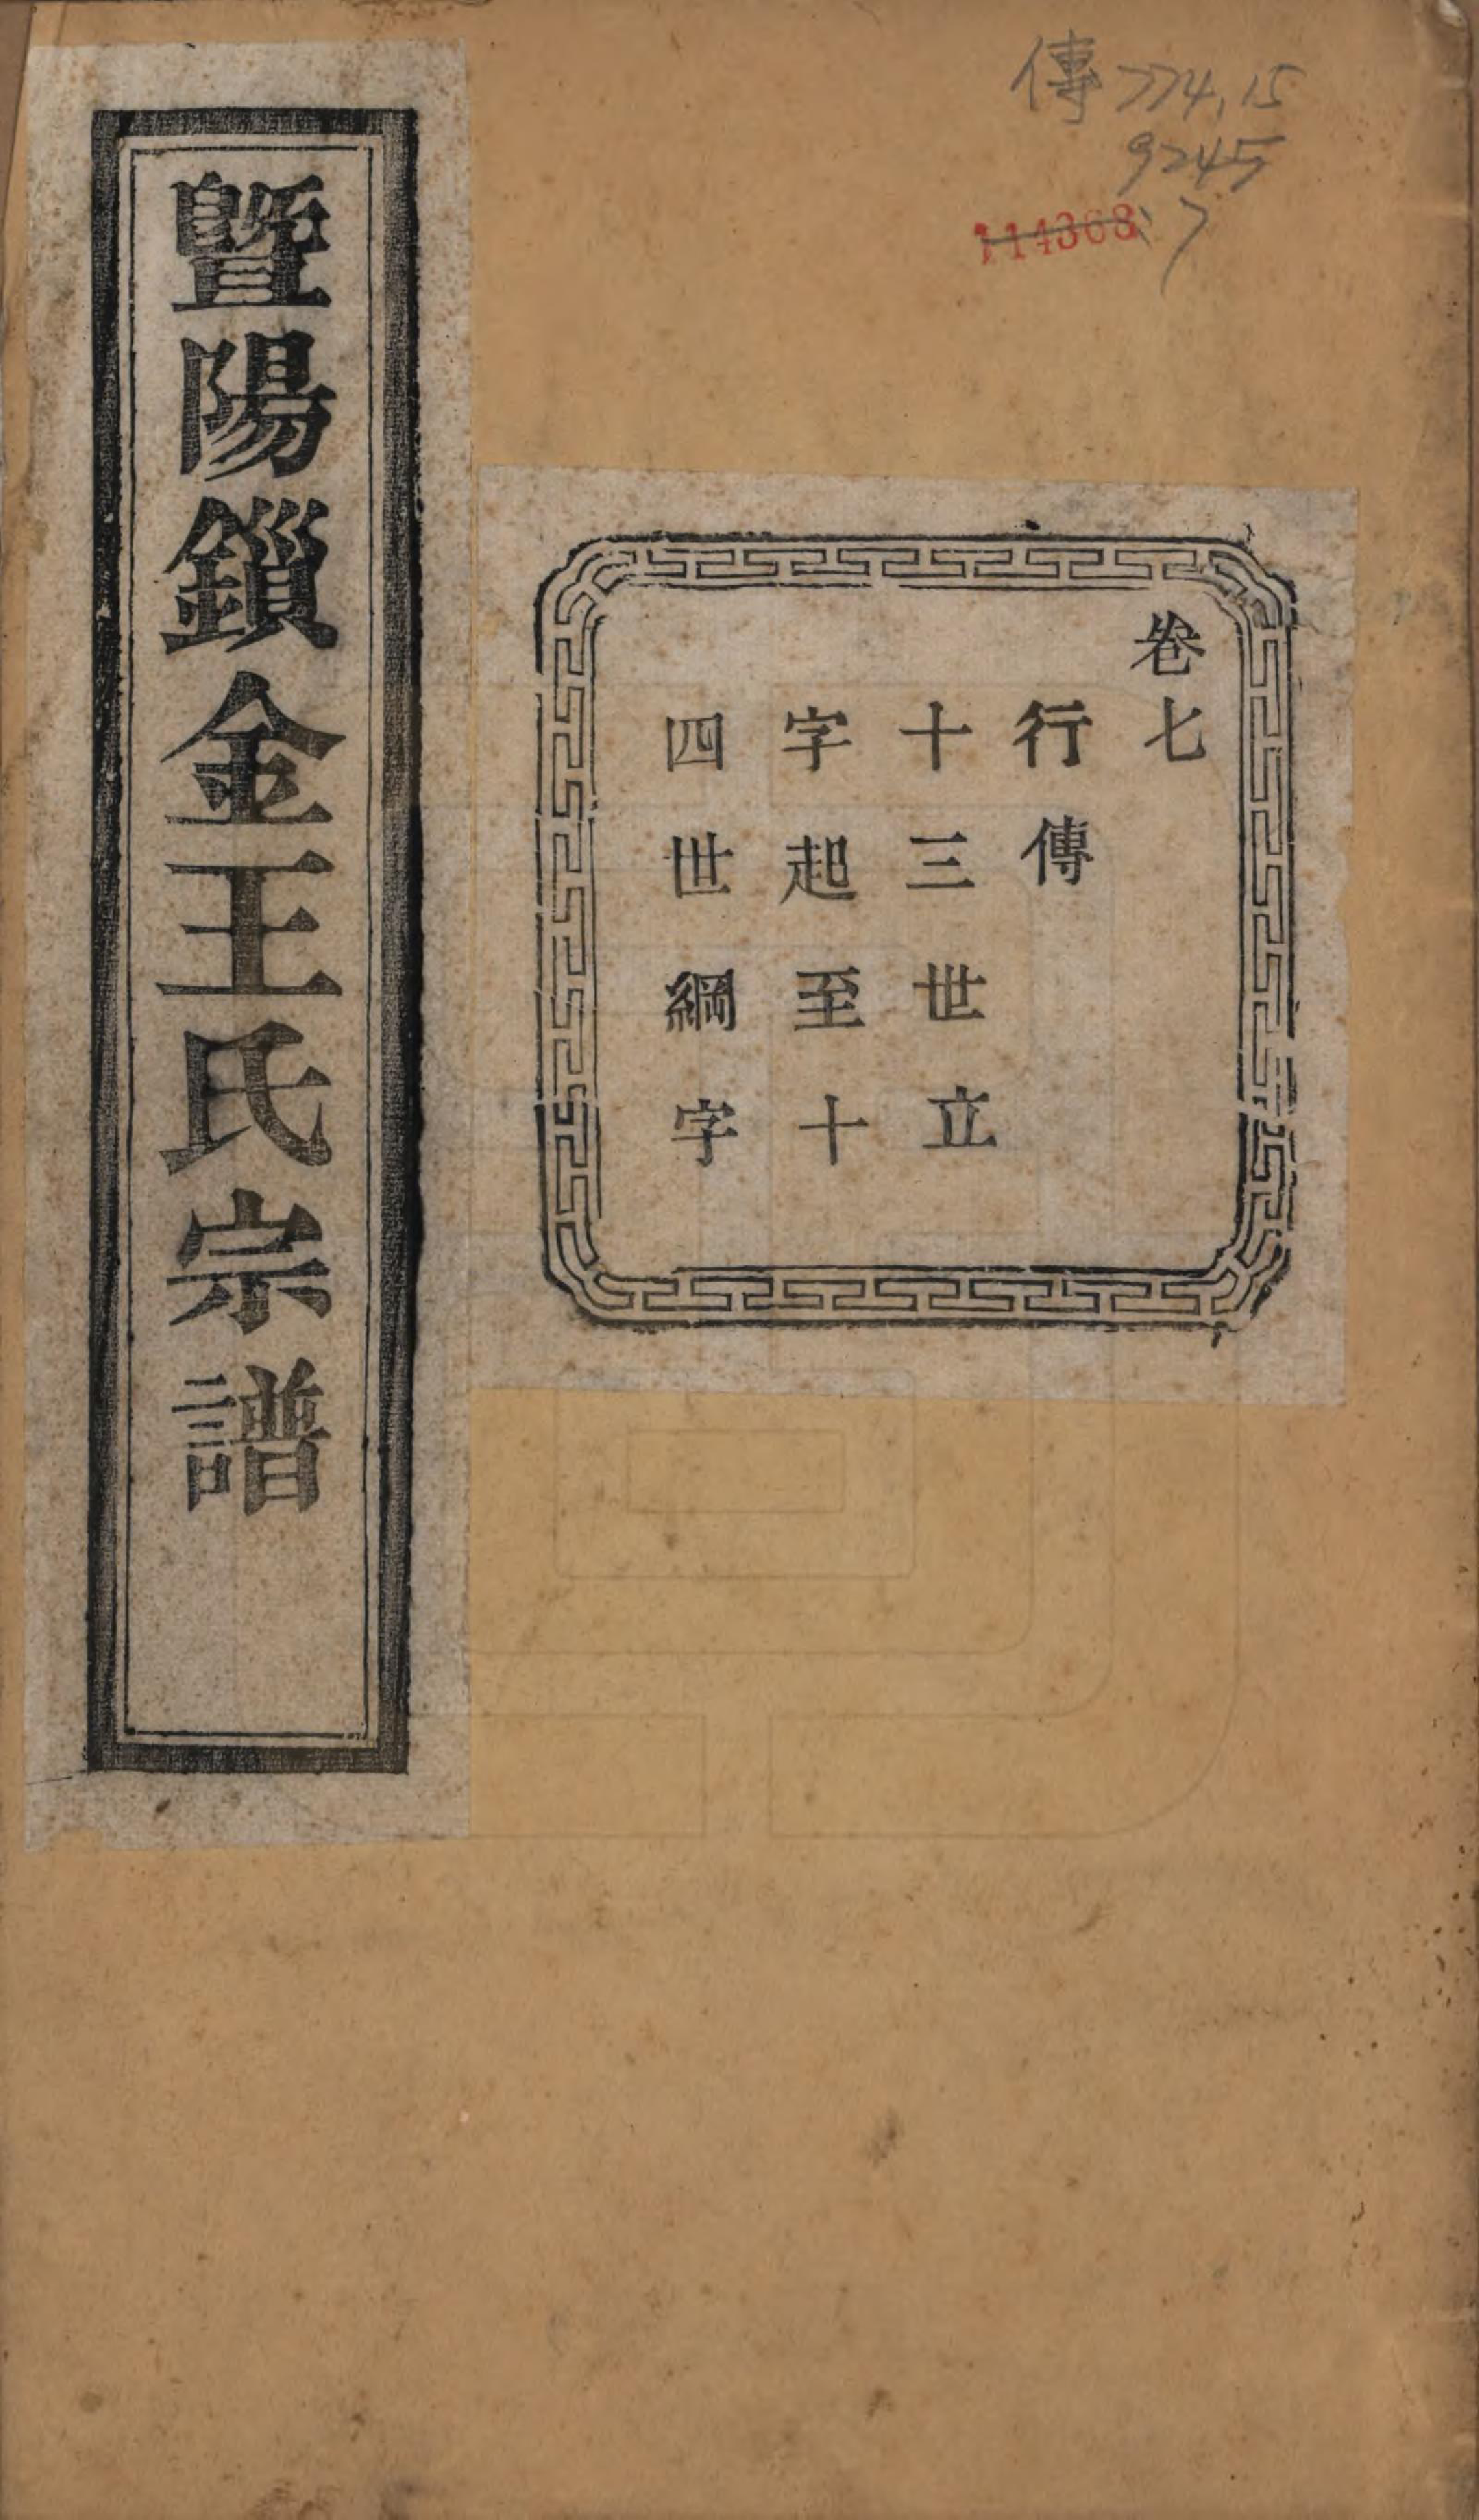 傳 774.15
9245
:7
114368
卷七
行傳
十三世立
字起至十
四世綱字
暨陽鎻金王氏宗譜